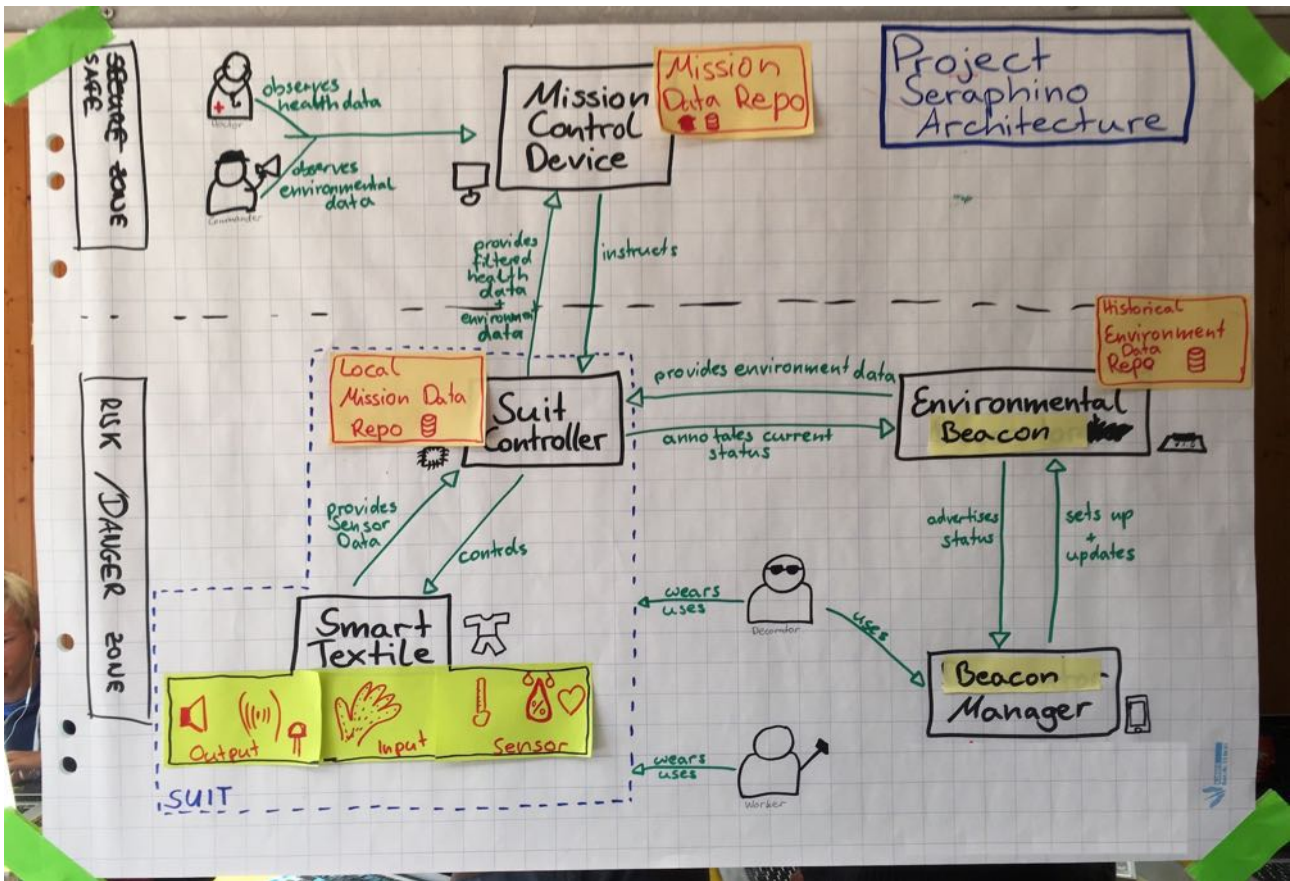 SAFE
ZONE
observes
health data
Doctor
observes
environmental
data
Commander
Mission
Control
Device
Mission
Data Repo
Project
Seraphino
Architecture
provides
filtered
health
data
+
environmat
data
instructs
Historical
Environment
Data
Repo
RISK / DANGER ZONE
Local
Mission Data
Repo
Suit
Controller
provides environment data
annotates current
status
Environmental
Beacon
provides
Sensor
Data
controls
advertises
status
sets up
+
updates
wears
uses
Decorator
uses
Smart
Textile
Output
Input
%
Sensor
SUIT
Beacon
Manager
wears
uses
Worker